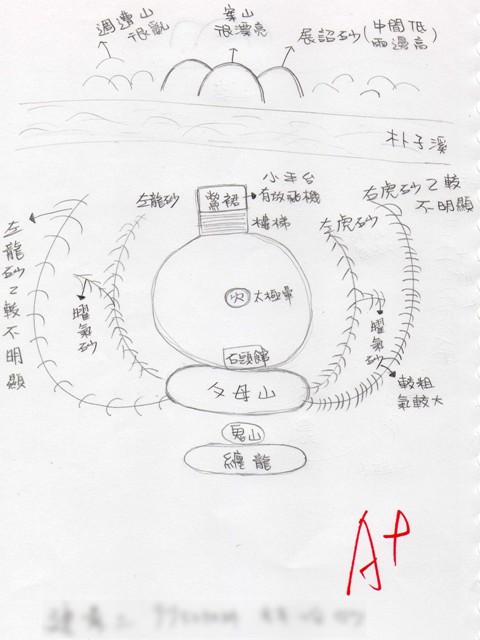 週遭山
很亂
案山
很漂亮
展詔砂(中間低
兩邊高)
朴子溪
小平台
有放飛機
鱉裙
樓梯
左龍砂
左虎砂
右虎砂2較
不明顯
左龍砂2較不明顯
曜氣砂
火
太極暈
曜氣砂
石頭館
父母山
較粗
氣較大
鬼山
纏龍
A+